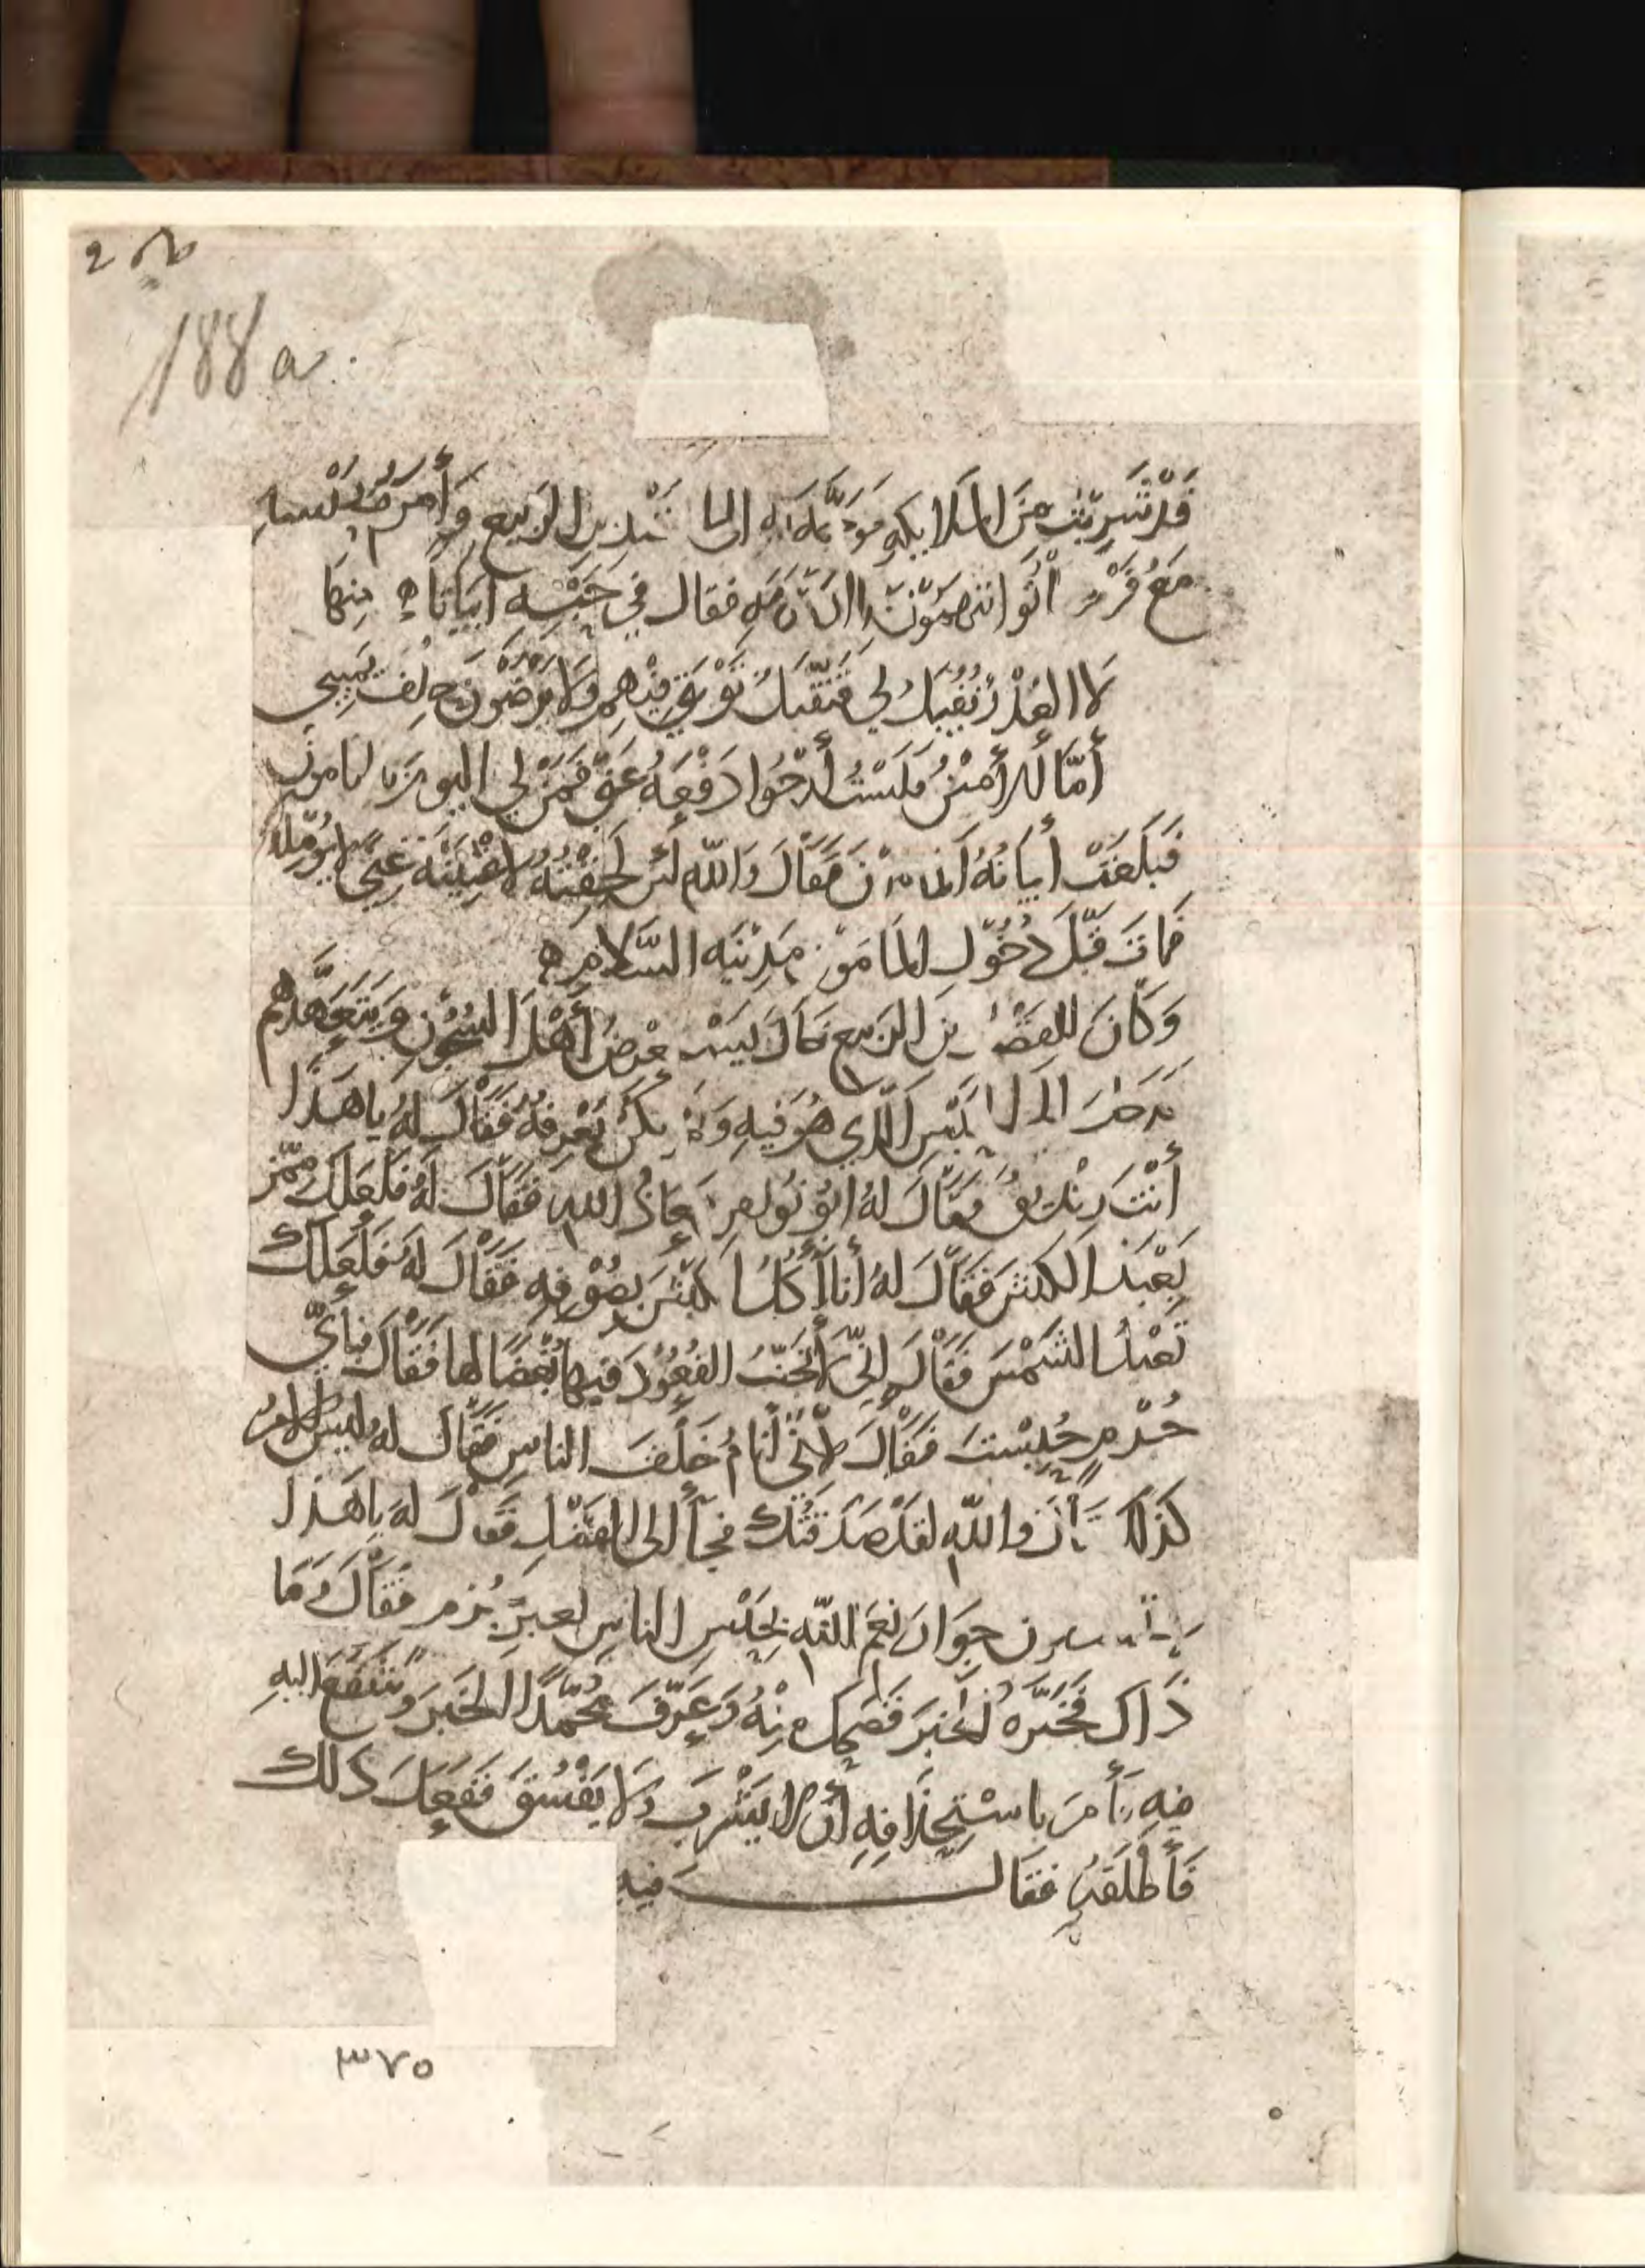 188 a
قَدْ شَرِبْتُ مِنَ الملايكه الى الربيع وَأَمَرَ
فقال في حَبْسِه ابياتا ه منها
لَا العُذْرُ يُقْبَلُ لي فَيُقْبَلُ فيهم وَلَا يَرْضَوْنَ حِلْفَ يَمِيني
أَمَّا الأَمِيْنُ فَلَسْتُ أَرْجُوا دَفْعَهُ عَنِّي فَمَنْ لي اليومَ بالمامونِ
فَبَلَغَتْ أبياتُهُ المامونَ فَقَالَ وَاللهِ لَئن لَحِقْتُهُ لاغْنِيَنَّه غِنًى لا يُؤمّله
فمات قَبْلَ دُخُولِ المَامونِ مَدِيْنَه السَّلَامِ ه
وَكَانَ للفَضْلِ بن الربيع خالٌ يَسْتَعْرِضُ أَهْلَ السُّجُونِ وَيَتَعَهَّدُهم
الحَبْسَ الَّذِي هُوَ فيهِ وَلَمْ يكُن يَعْرِفُهُ فَقَالَ لَهُ يا هَذَا
أَنْتَ زِنْديقٌ فَقَالَ لَهُ ابُو نُوَاسٍ مَعَاذَ اللهِ فَقَالَ لَهُ فَلَعَلَّكَ مِمَّن
يَعْبُدُ الكبشَ فَقَالَ لَهُ أنا أَأكُلُ الكَبْشَ بِصُوْفِهِ فَقَالَ لَهُ فَلَعَلَّكَ
تَعْبُدُ الشَّمْسَ فَقَالَ إِنِّي لَأتَجَنَّبُ القُعُوْدَ فيها بُغْضًا لها فَقَالَ فبأيِّ
جُرْمٍ حُبِسْتَ فَقَالَ لِأَنِّي أَنَامُ خَلْفَ الناسِ فَقَالَ لَهُ ليسَ الامرُ
كَذلكَ قَالَ واللهِ لقد صَدَقْتُكَ فجآ الى الفَضْلِ فَقَالَ لَهُ يا هَذا
جِوَارَ نِعَمِ اللهِ يُحْبَسُ الناس بغيرِ جُرمٍ فَقَالَ وَمَا
ذَاكَ فَخَبَّرَهُ الخبَرَ فَضَحِكَ مِنْهُ وَعَرَّفَ مُحَمَّدًا الخَبَرَ وَشَفَعَ اليهِ
فيهِ فَأَمَرَ باسْتِحْلَافِهِ أَن لا يَشْرَبَ وَلَا يَفْسُقَ فَفَعَلَ ذلك
فَأَطْلَقَهُ فقال فيه
٣٧٥